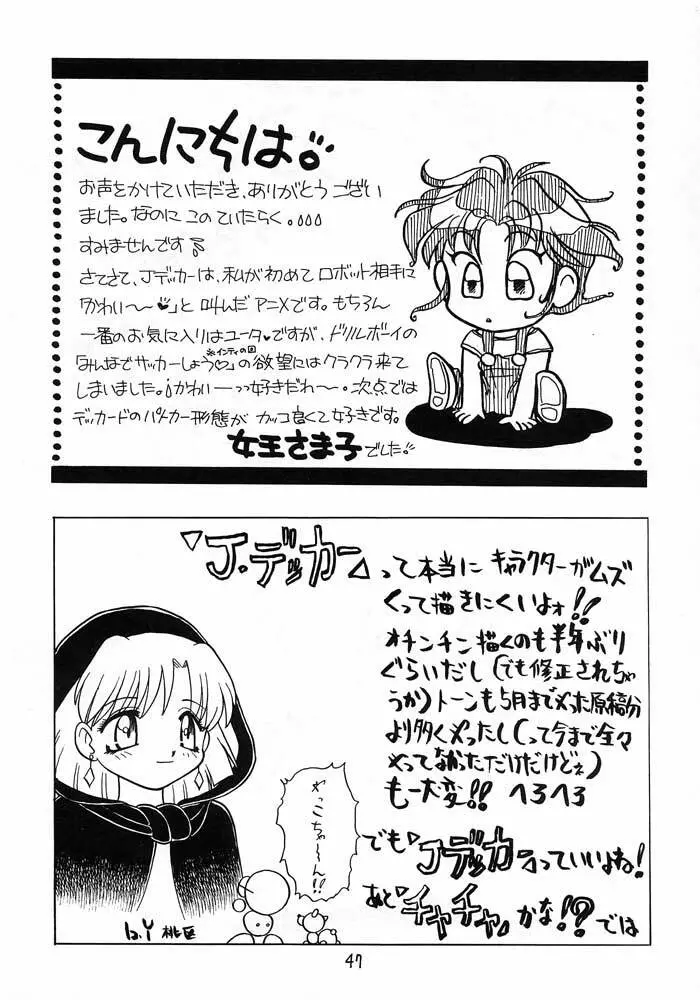 こんにちは。
お声をかけていただき、ありがとうござい
ました。なのに このていたらく。
すみませんです
さてさて、Jデッカーは、私が初めて ロボット相手に
「かわい〜〜♥」と 叫んだ アニメです。もちろん
一番のお気に入りはユータ♥ですが、ドリルボーイの
「みんなでサッカーしよう♡」の欲望にはクラクラ来て
しまいました。かわいーっっ好きだわ〜。次点では
デッカードのパトカー形態が カッコ良くて好きです。
女王さま子でした。
「J.デッカー」って本当に キャラクターがムズ
くって描きにくいよォ!!
オチンチン描くのも半年ぶり
ぐらいだし(でも修正されちゃ
うか)トーンも5月まで使った原稿分
より多く使ったし(って今まで全々
使ってなかっただけだけどネ)
もー大変!! ヘろヘろ
でも「Jデッカー」っていいよね!
あと「チャチャ」かな!?では
やっこちゃ〜ん!!
b.Y 桃区
47